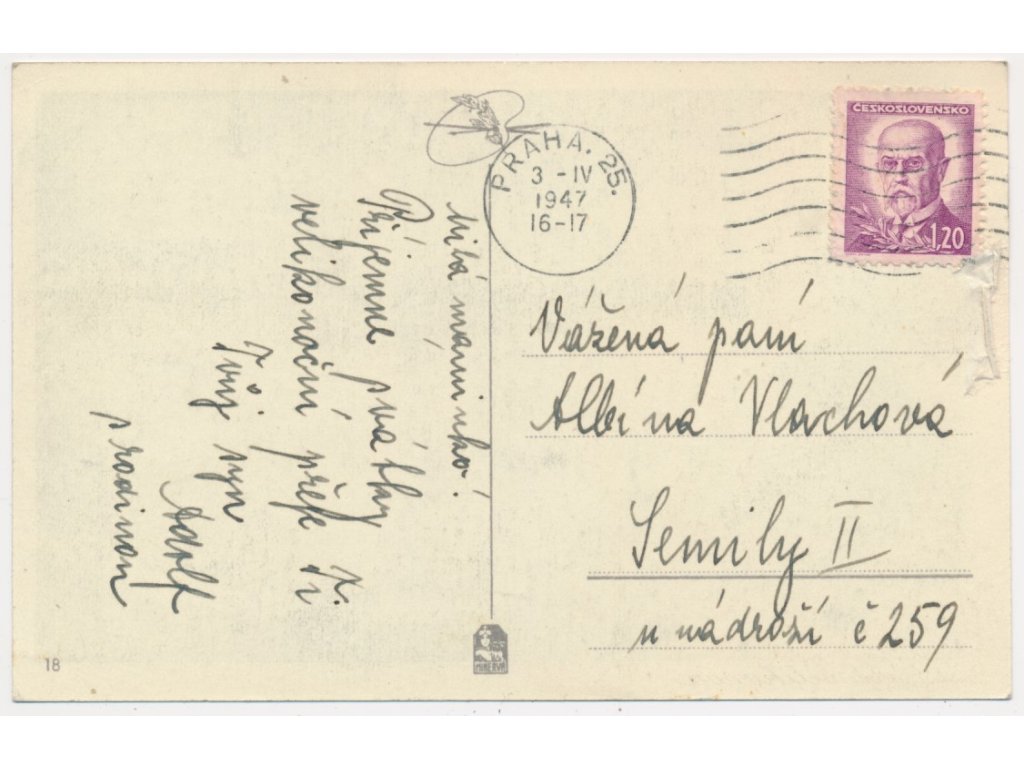 Milá máminko!
Příjemné svátky
velikonoční přeje Ti
Tvůj syn
Adolf
s rodinou
PRAHA. 25.
3 -IV
1947
16-17
ČESKOSLOVENSKO
1,20
Vážená paní
Albína Vlachová
Semily II
u nádraží č 259
18
MINERVA